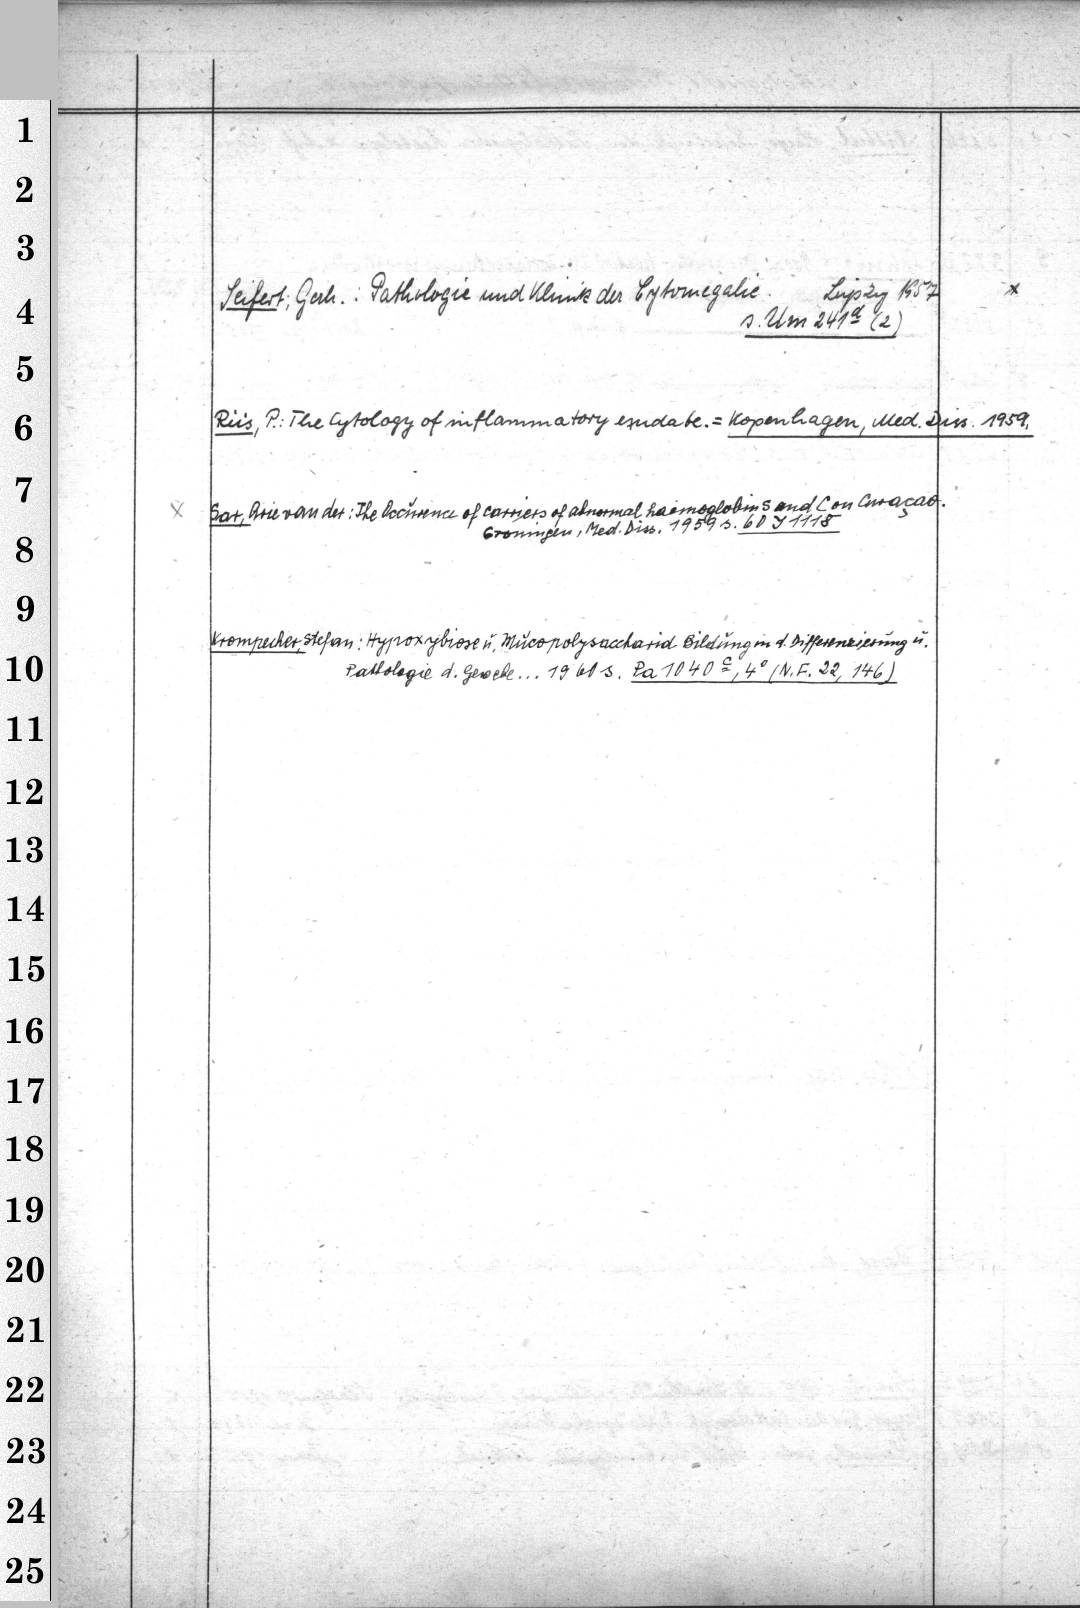 1
2
3
Seifert, Gerh.: Pathologie und Klinik der Cytomegalie. Leipzig 1957 x
4
s. Um 241d (2)
5
6
Riis, P.: The Cytology of inflammatory exudate. = Kopenhagen, Med. Diss. 1959.
7
x Sar, Arie van der: The Occurence of carriers of abnormal haemoglobin S and C on Curaçao.
Groningen, Med. Diss. 1959 s. 60 J 1118
8
9
Krompecher, Stefan: Hypoxybiose u. Mucopolysaccharid Bildung in d. Differenzierung u.
10
Pathologie d. Gewebe... 1960 s. Pa 1040c, 4° (N.F. 22, 146)
11
12
13
14
15
16
17
18
19
20
21
22
23
24
25